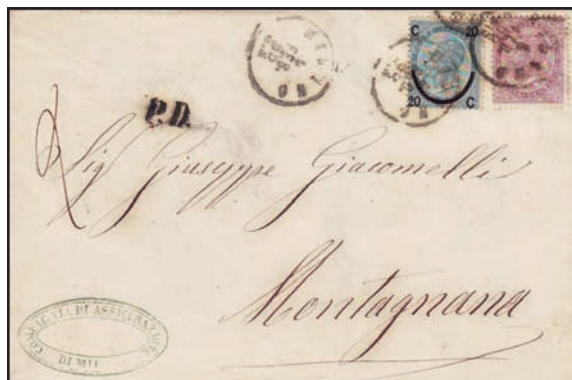 MILANO
C 20
20 C
MILANO
P.D.
Sig Giuseppe Giacomelli
Montagnana
COMPAGNIA DI ASSICURAZIONE
DI MIL